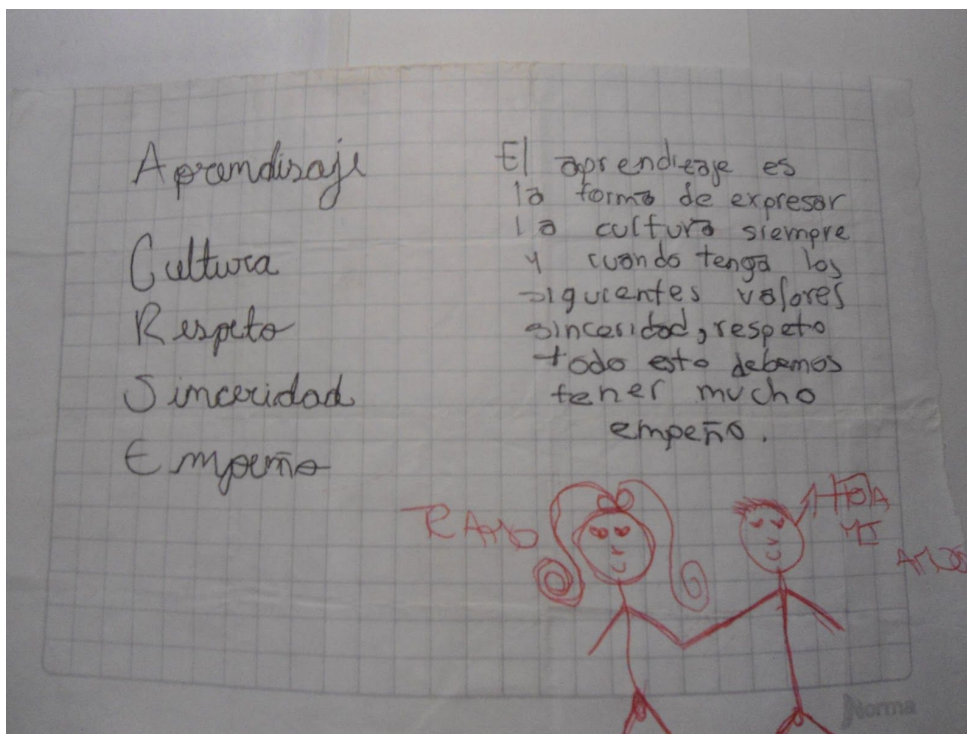 Aprendisaje
Cultura
Respeto
Sinceridad
Empeño
El aprendizaje es
la forma de expresar
la cultura siempre
y cuando tenga los
siguientes valores
sinceridad, respeto
todo esto debemos
tener mucho
empeño.
TE AMO
HOLA
MI
AMOR
Norma